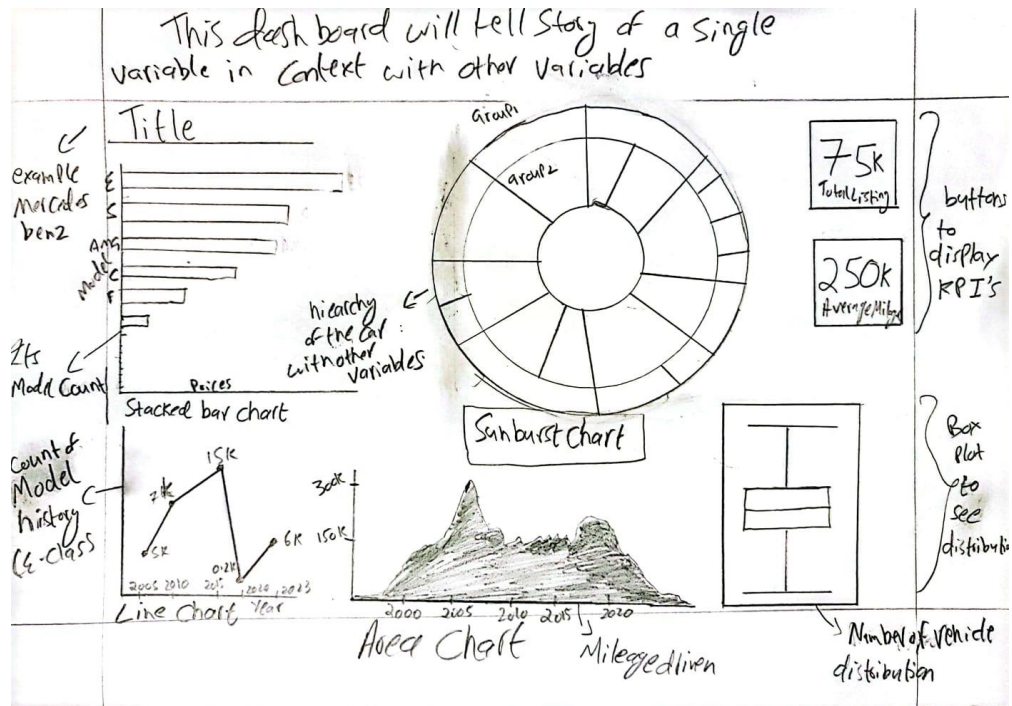 This dashboard will tell Story of a single
variable in context with other variables
Title
example
Mercedes
benz
E
S
AMG
C
F
Model
Its
Model Count
Prices
Stacked bar chart
Group1
Group2
hiearchy
of the car
with other
variables
Sunburst Chart
75k
Total Listing
250k
Average Milage
buttons
to
display
KPI's
Count of
Model
history
5k
7k
15k
0.2k
6k
2005 2010 2015 2020 2023
Line Chart
Year
300k
150k
2000 2005 2010 2015 2020
Area Chart
Mileage driven
Box
plot
to
see
distribution
Number of vehicle
distribution